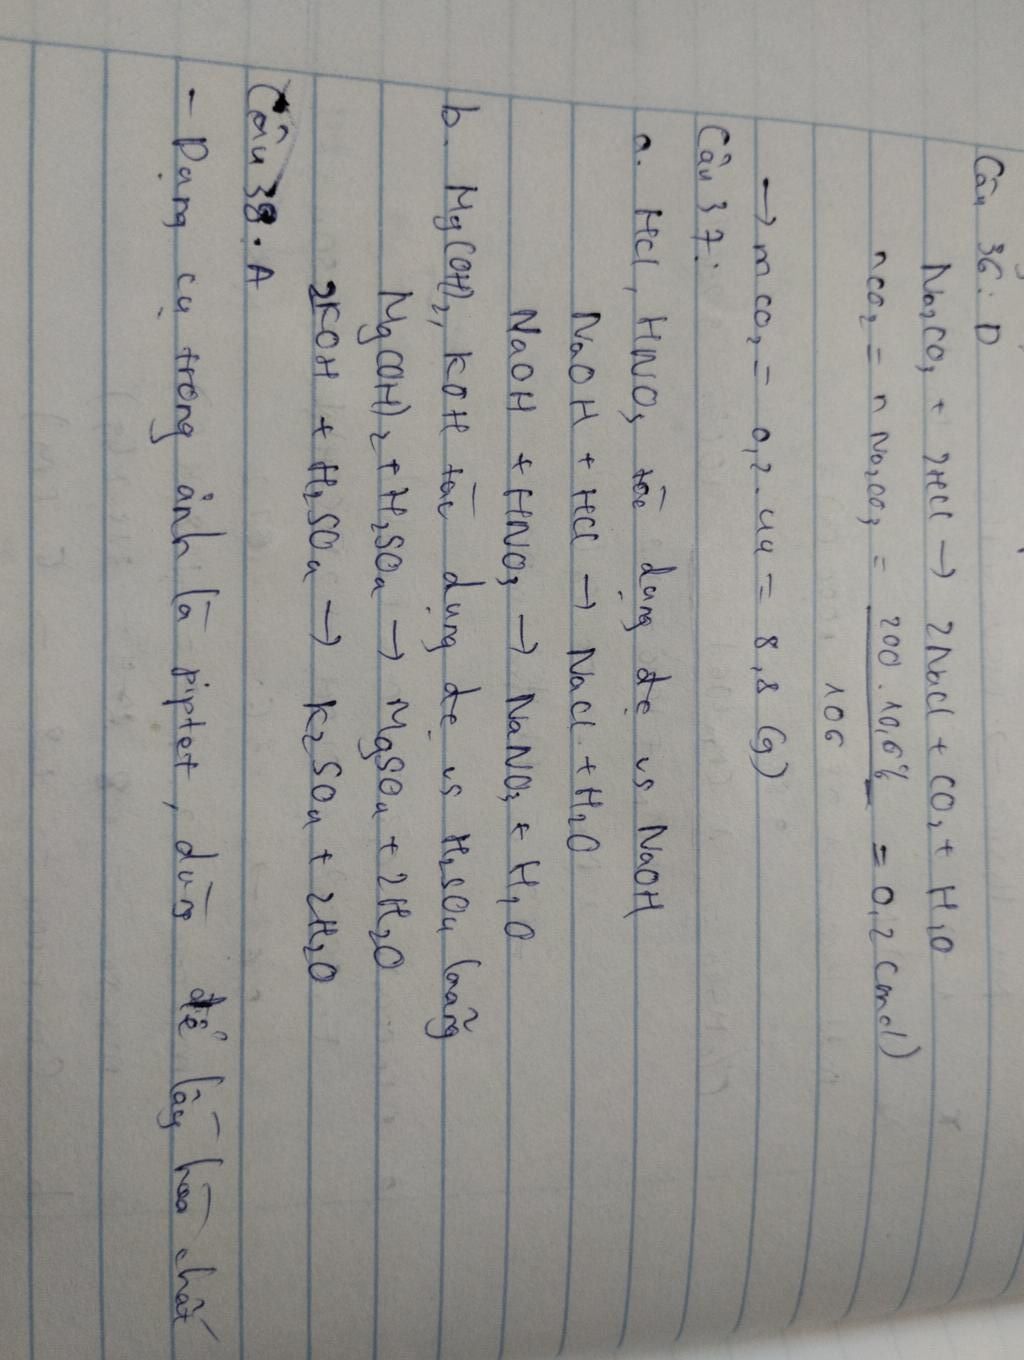 Câu 36: D
Na₂CO₃ + 2HCl → 2NaCl + CO₂ + H₂O
nCO₂ = nNa₂CO₃ = 200.10,6% / 106 = 0,2 (mol)
→ mCO₂ = 0,2.44 = 8,8 (g)
Câu 37:
a. HCl, HNO₃ tác dụng đc vs NaOH
NaOH + HCl → NaCl + H₂O
NaOH + HNO₃ → NaNO₃ + H₂O
b. Mg(OH)₂, KOH tác dụng đc vs H₂SO₄ loãng
Mg(OH)₂ + H₂SO₄ → MgSO₄ + 2H₂O
2KOH + H₂SO₄ → K₂SO₄ + 2H₂O
Câu 38. A
- Dụng cụ trong ảnh là piptet, dùng để lấy hóa chất